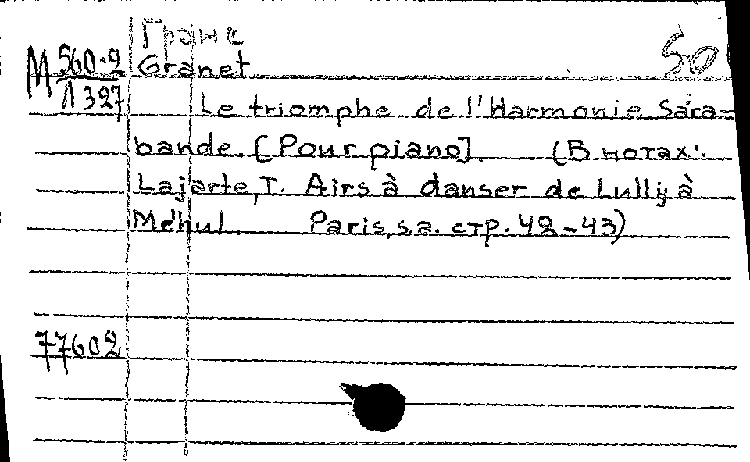 Гране
50
М 560-2
Granet
Л 327
Le triomphe de l'Harmonie Sara-
bande. [Pour piano]. (В нотах:
Lajarte, T. Airs à danser de Lully à
Méhul. Paris, s.a. стр. 42-43)
77602